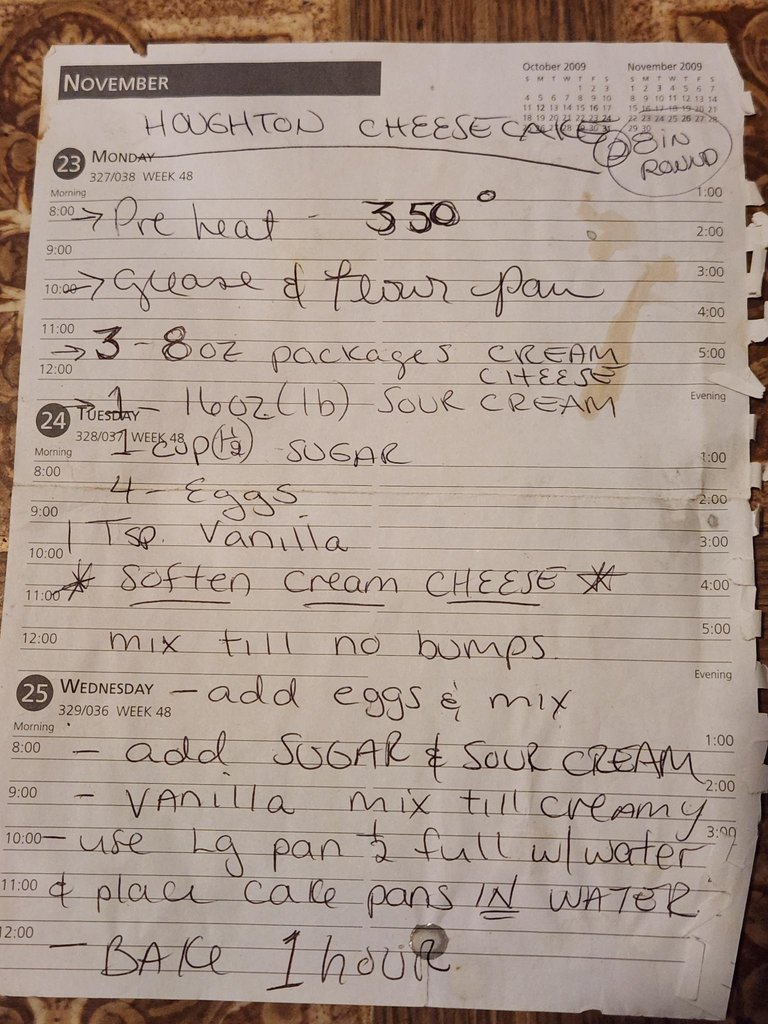 NOVEMBER
October 2009 November 2009
S M T W T F S S M T W T F S
1 2 3 1 2 3 4 5 6 7
4 5 6 7 8 9 10 8 9 10 11 12 13 14
11 12 13 14 15 16 17 15 16 17 18 19 20 21
18 19 20 21 22 23 24 22 23 24 25 26 27 28
29 30 31 29 30
HOUGHTON CHEESECAKE
② 8 IN
ROUND
23 MONDAY
327/038 WEEK 48
Morning
8:00 → Pre heat - 350° 1:00
2:00
9:00
10:00 → Grease & flour pan 3:00
4:00
11:00
→ 3 - 8 oz packages CREAM 5:00
12:00 CHEESE
→ 1 - 16oz (lb) SOUR CREAM Evening
24 TUESDAY
328/037 WEEK 48
1 cup (1½) SUGAR
Morning 1:00
8:00
4 - Eggs 2:00
9:00
1 Tsp. Vanilla 3:00
10:00
* Soften Cream CHEESE * 4:00
11:00
12:00 mix till no bumps 5:00
Evening
25 WEDNESDAY - add eggs & mix
329/036 WEEK 48
Morning
8:00 - add SUGAR & SOUR CREAM 1:00
2:00
9:00 - VANilla mix till creamy
10:00 - use Lg pan ½ full w/water 3:00
11:00 & place cake pans IN WATER
12:00 - BAKe 1 hour